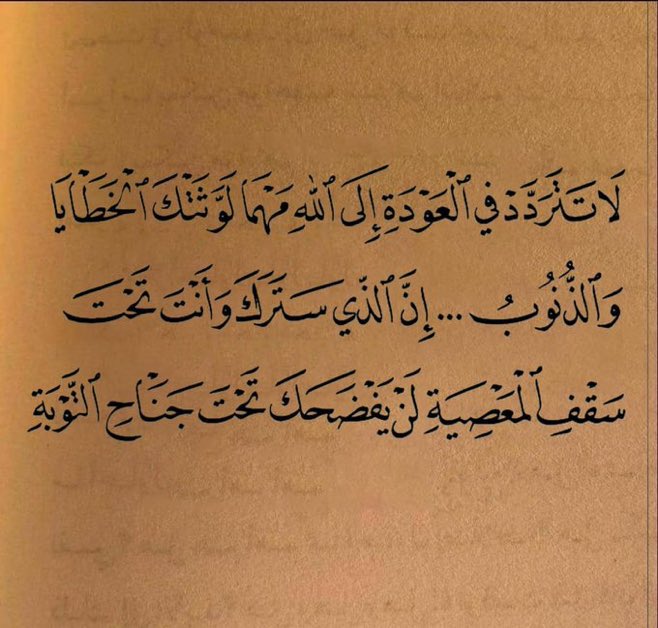 لَا تَتَرَدَّدْ فِي ٱلْعَوْدَةِ إِلَى ٱللهِ مَهْمَا لَوَّثَتْكَ ٱلْخَطَايَا
وَٱلذُّنُوبُ ... إِنَّ ٱلَّذِي سَتَرَكَ وَأَنْتَ تَحْتَ
سَقْفِ ٱلْمَعْصِيَةِ لَنْ يَفْضَحَكَ تَحْتَ جَنَاحِ ٱلتَّوْبَةِ